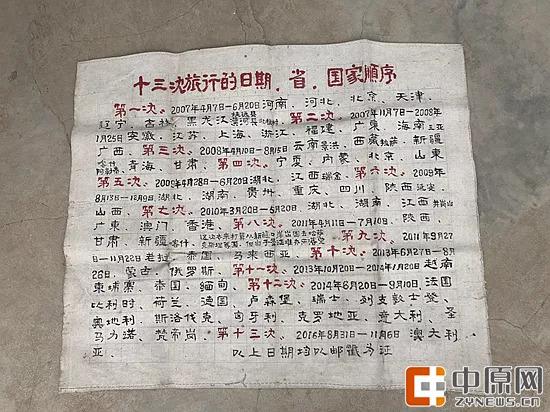 十三次旅行的日期.省.国家顺序
第一次。2007年4月7日—6月20日河南、河北、北京、天津、
辽宁、吉林、黑龙江、第二次。2007年11月7日—2008年
1月25日安徽、江苏、上海、浙江、福建、广东、海南三亚
广西、第三次。2008年4月10日—8月15日云南景洪、西藏拉萨、新疆
喀什、青海、甘肃、第四次。宁夏、内蒙、北京、山东
第五次。2009年4月28日—6月20日湖北、江西瑞金、第六次。2009年
8月13日—12月9日湖北、湖南、贵州、重庆、四川、陕西延安、
山西、第七次。2010年3月20日—5月20日、湖北、湖南、江西井岗山
广东、澳门、香港、第八次。2011年4月11日—7月10日、陕西、
甘肃、新疆喀什、第九次。2011年9月27
日—11月22日老挝、泰国、马来西亚、第十次。2013年6月27日—8月
26日、蒙古、俄罗斯、第十一次。2013年10月20日—2014年1月20日越南
柬埔寨、泰国、缅甸、第十二次。2014年6月20日—9月10日、法国
比利时、荷兰、德国、卢森堡、瑞士、列支敦士登、
奥地利、斯洛伐克、匈牙利、克罗地亚、意大利、圣
马力诺、梵帝岗、第十三次。2016年8月31日—11月6日澳大利
亚、以上日期均以邮戳为证
中原网
ZYNEWS.CN